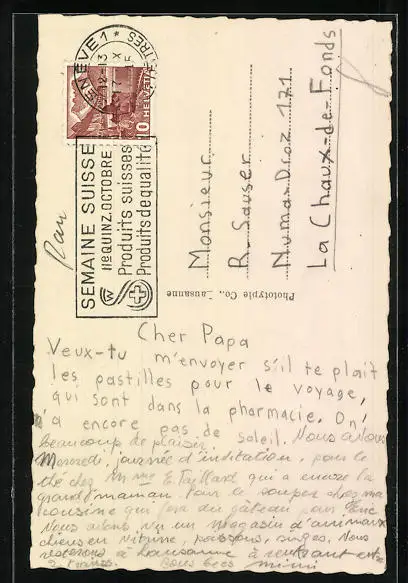 GENEVE 1
LETTRES
12-13
IX
10 HELVETIA
SEMAINE SUISSE
IIe QUINZ. OCTOBRE
Produits suisses
Produits de qualité
Monsieur
R. Sauser
Numa-Droz 171.
La Chaux-de-Fonds
Phototypie Co., Lausanne
Cher Papa
Veux-tu m'envoyer s'il te plaît
les pastilles pour le voyage,
qui sont dans la pharmacie. On
n'a encore pas de soleil. Nous avons
beaucoup de plaisir.
Mercredi, journée d'invitation, pour le
thé chez Mme E. Taillard qui a encore la
grand'maman. Pour le souper chez ma
cousine qui fera du gâteau pour
Nous avons vu un magasin d'animaux
chiens en vitrine, poissons, singes. Nous
resterons à Lausanne à rentrant entre
2 trains. Bons becs mimi